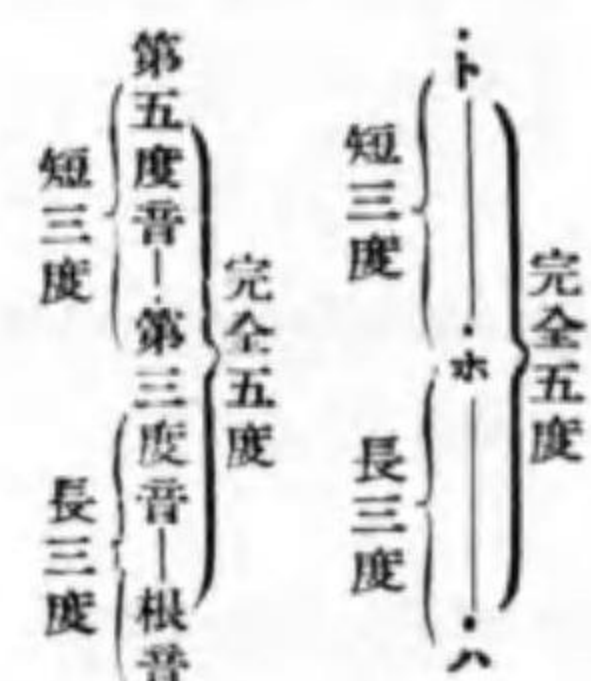 完全五度
・ト―・ホ―・ハ
短三度
長三度
完全五度
第五度音―第三度音―根音
短三度
長三度